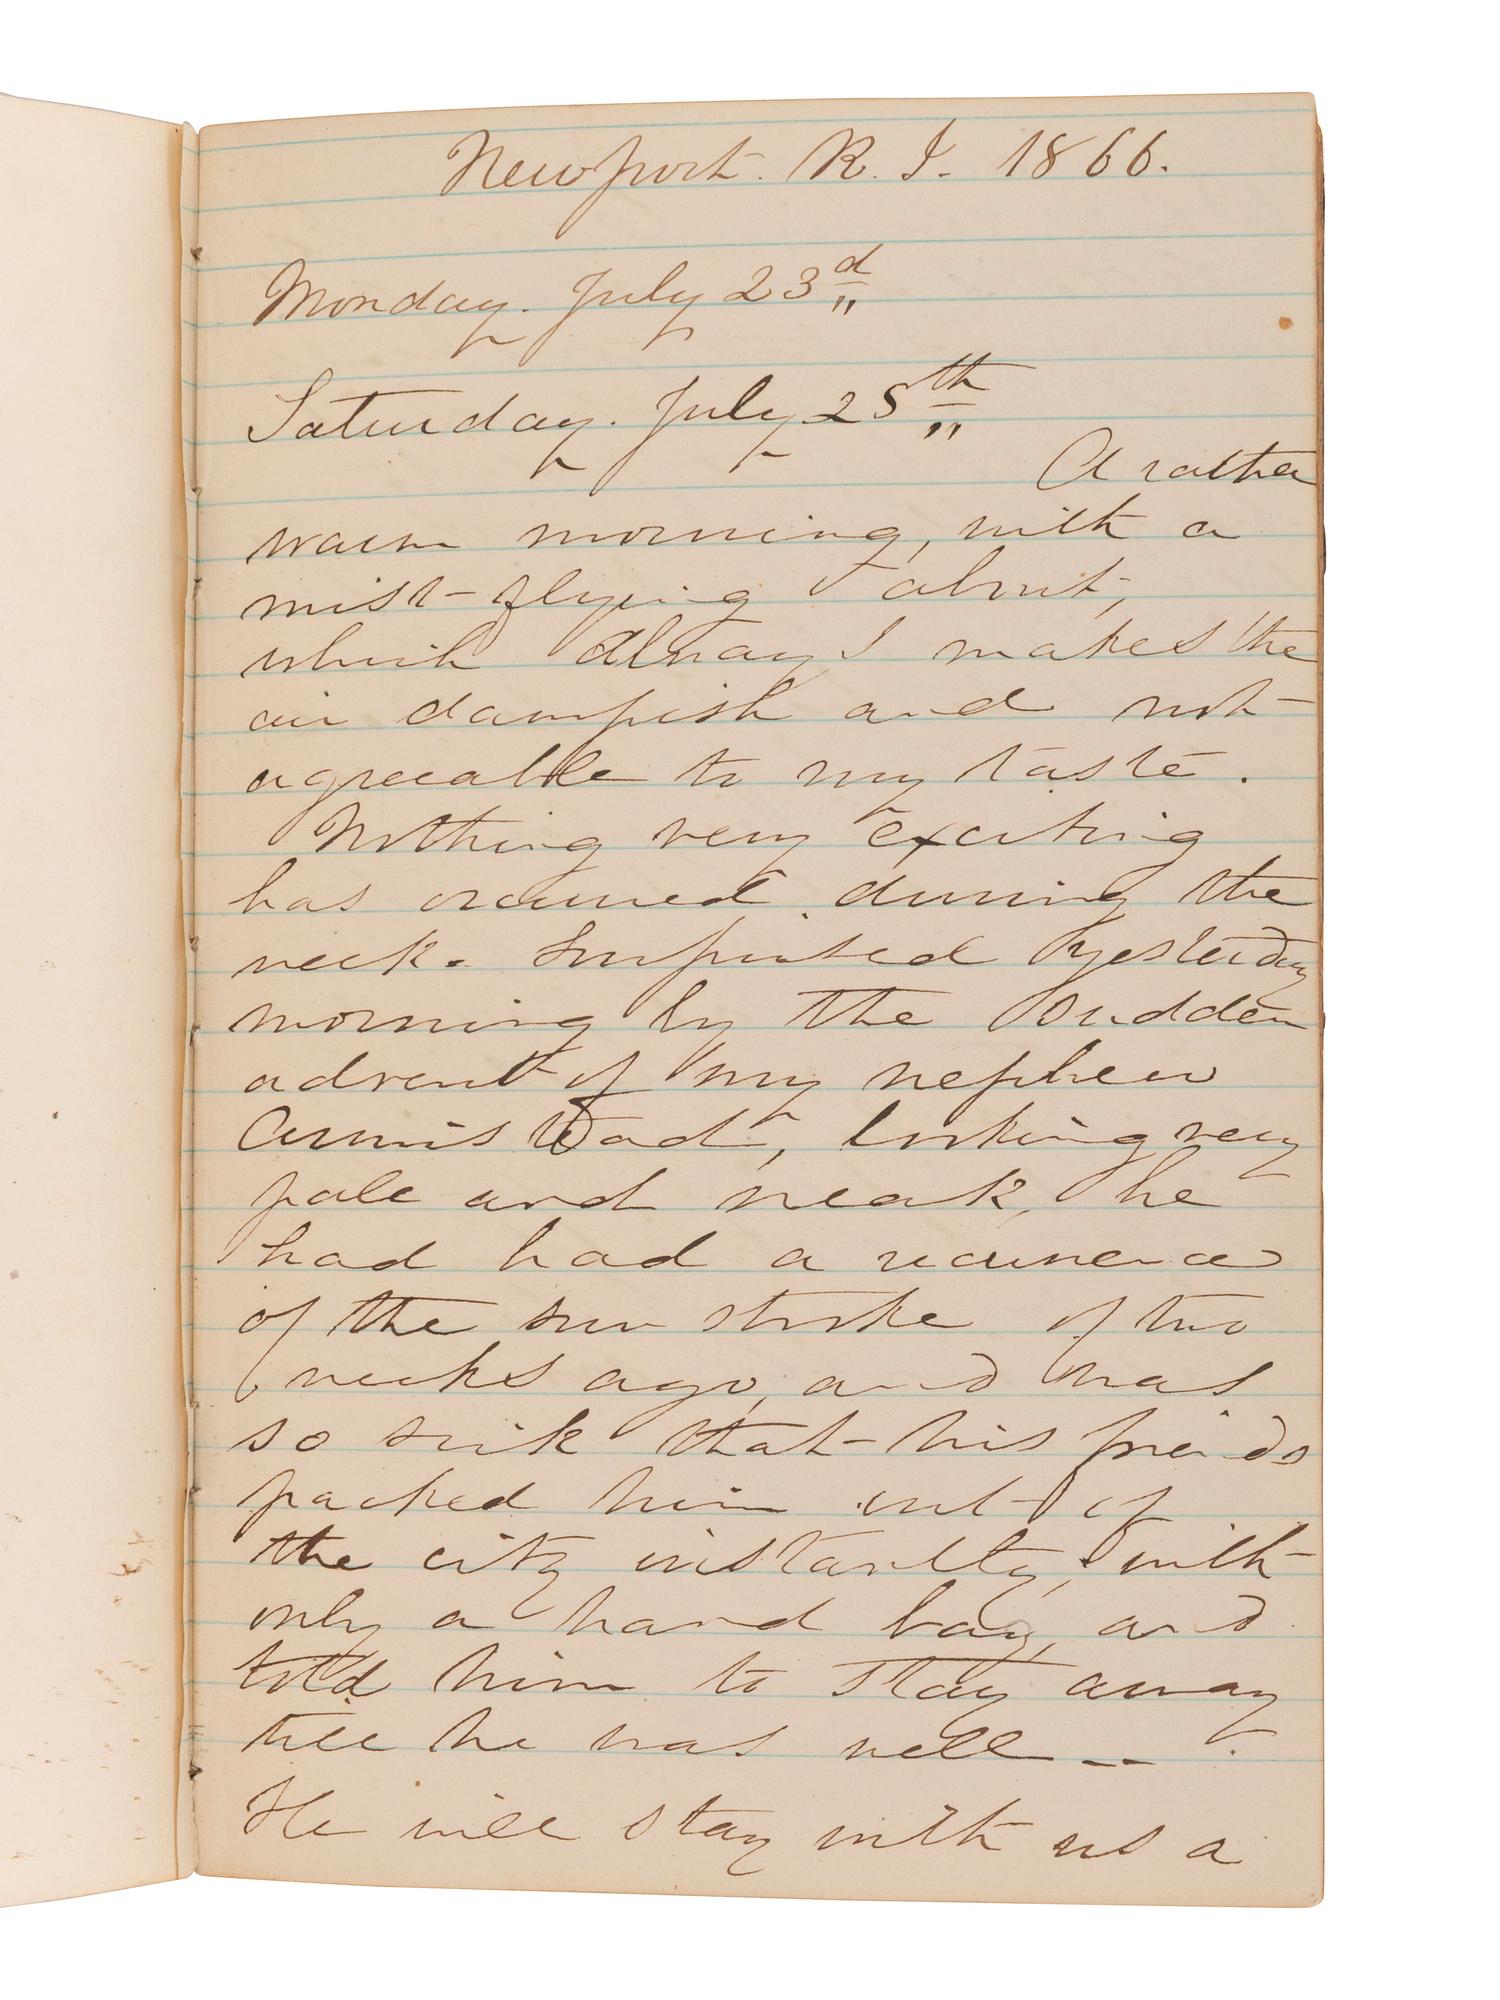 Newport. R. I. 1866.
Monday. July 23d
Saturday. July 25th
A rather
warm morning, with a
mist flying about,
which always makes the
air dampish and not
agreeable to my taste.
Nothing very exciting
has occurred during the
week. Surprised yesterday
morning by the sudden
advent of my nephew
Armistead, looking very
pale and weak, he
had had a recurrence
of the sun stroke of two
weeks ago, and was
so sick that his friends
packed him out of
the city instantly, with
only a hand bag, and
told him to stay away
till he was well --
He will stay with us a